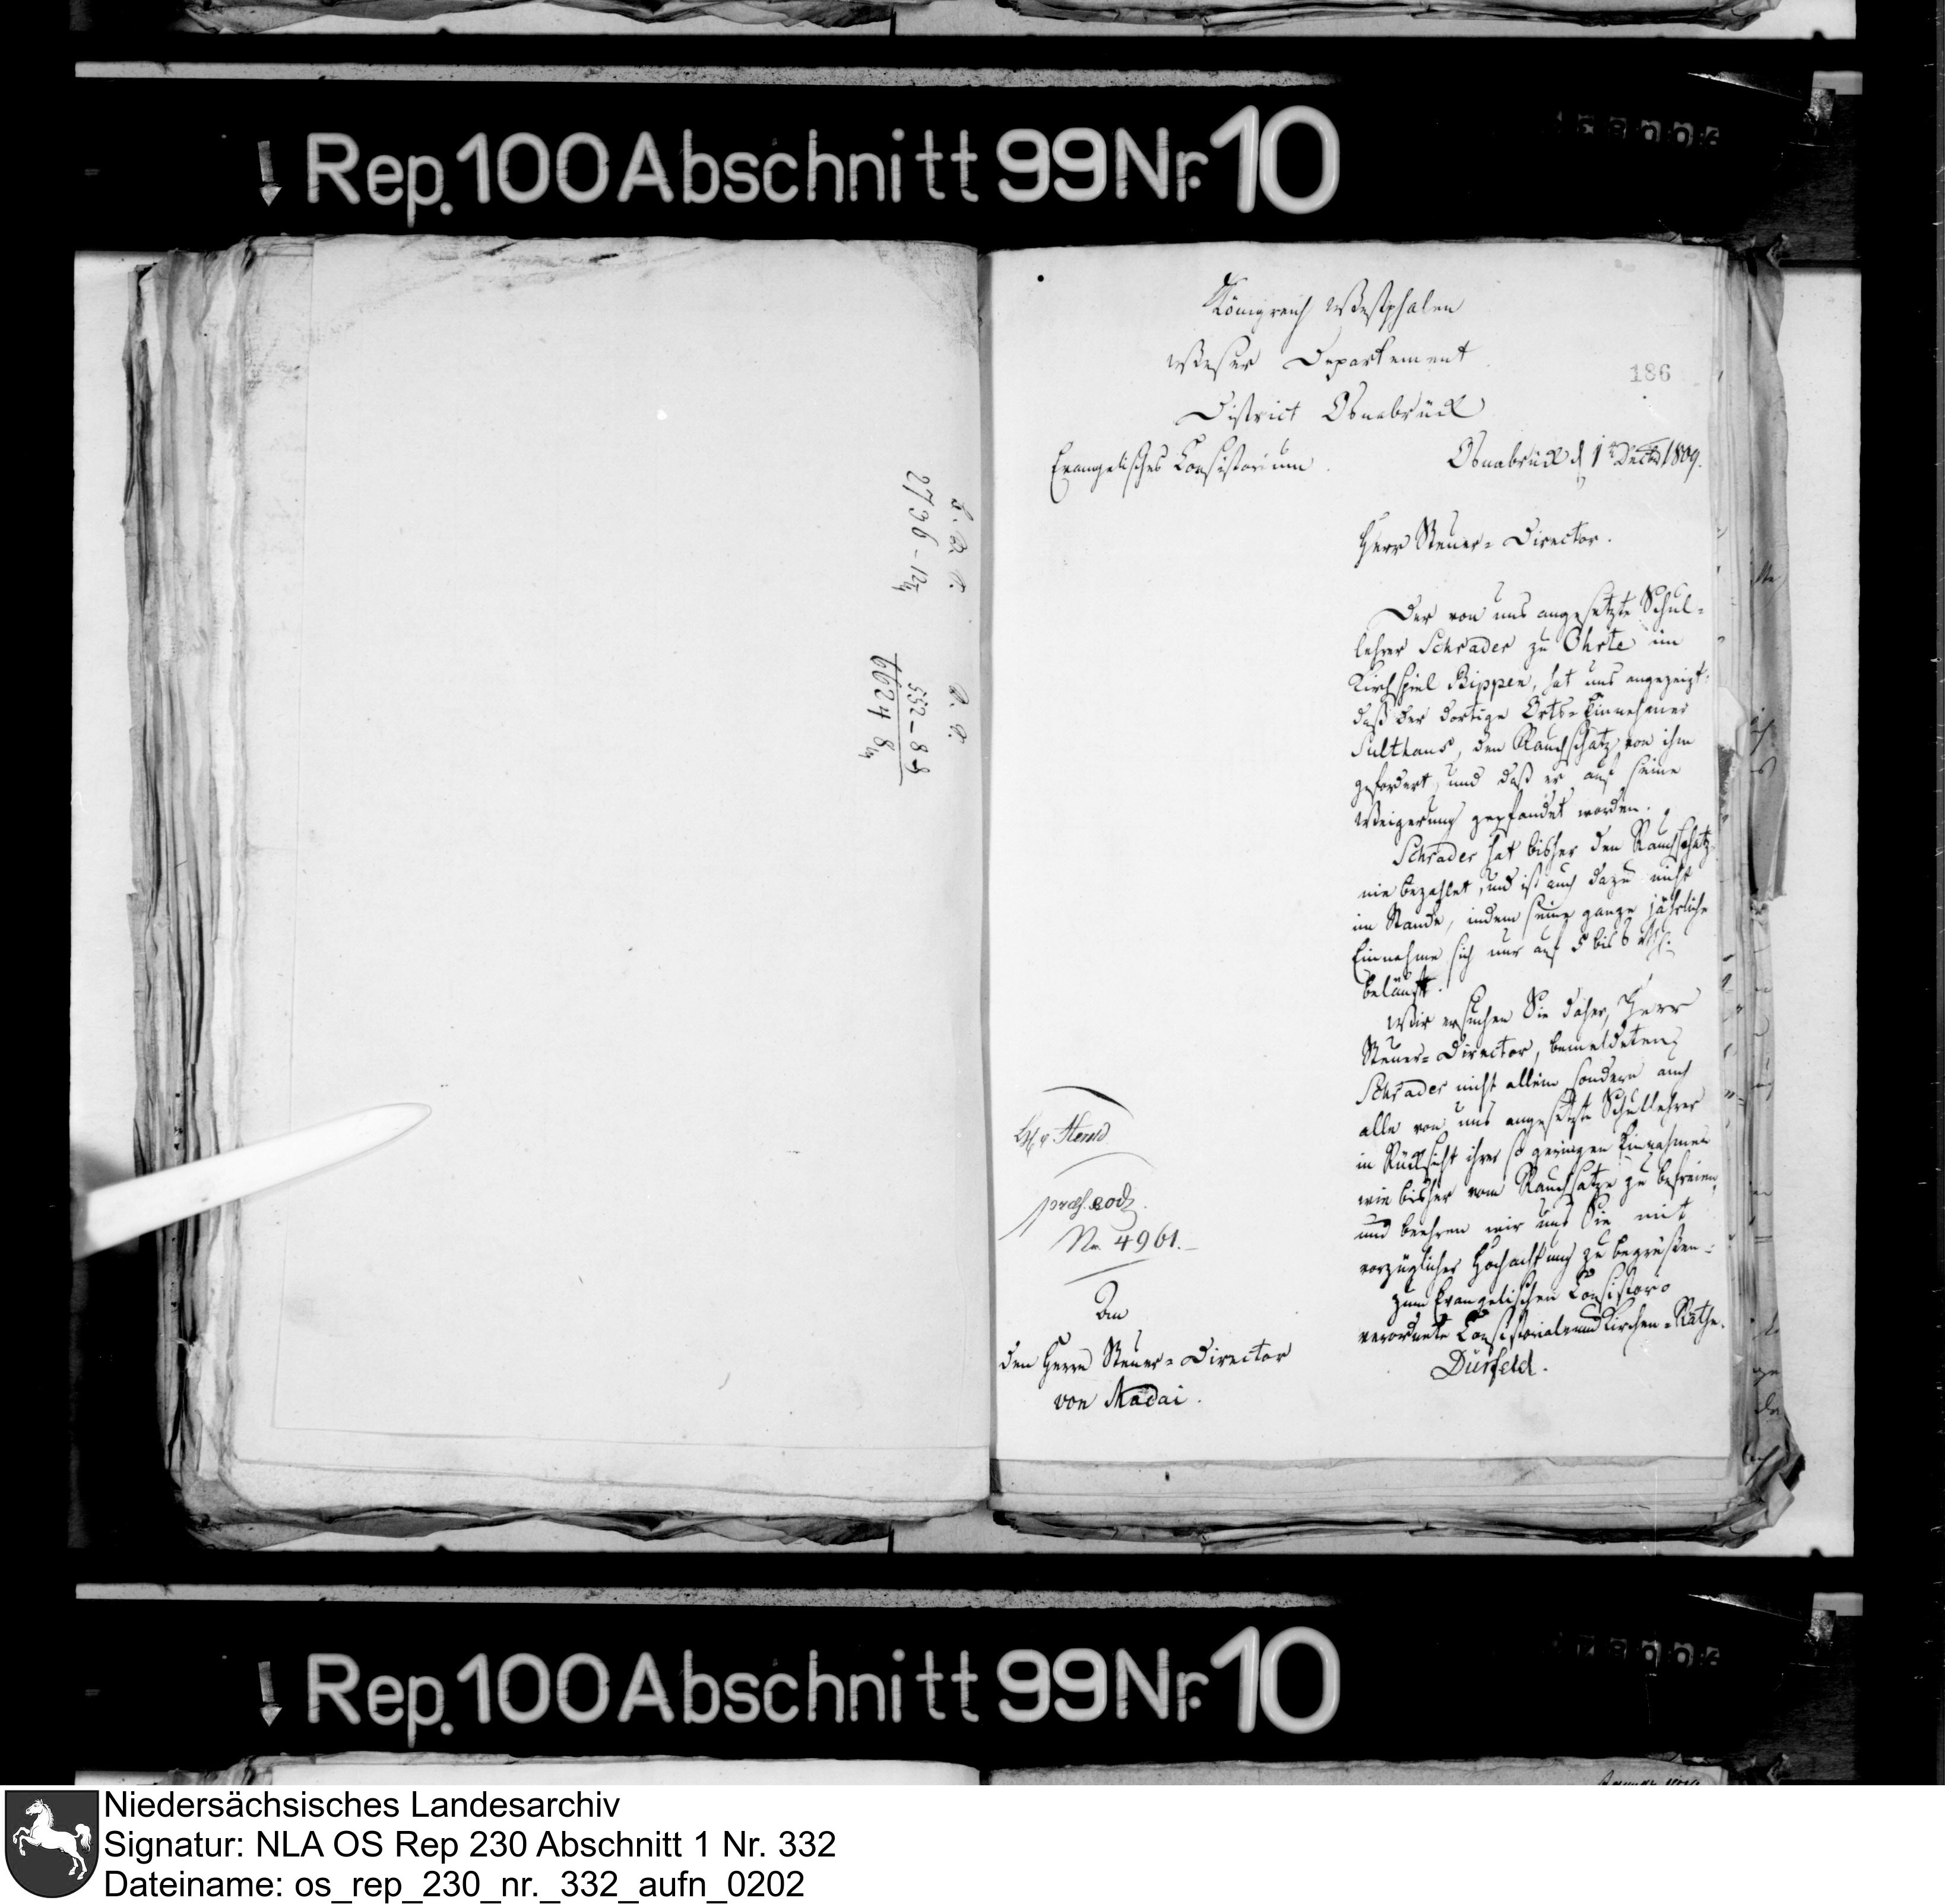 Rep. 100 Abschnitt 99 Nr. 10
Königreich Westphalen
Weser Departement
186
District Osnabrück
Evangelisches Consistorium.
Osnabrück d 1t Decbr 1809.
Herr Steuer-Director.
Der von uns angesetzte Schul-
lehrer Schrader zu Ohrte im
Kirchspiel Bippen, hat uns angezeigt:
daß der dortige Orts-Einnehmer
Sulthaus, den Rauchschatz von ihm
gefordert, und daß er auf seine
Weigerung gepfändet worden.
Schrader hat bisher den Rauchschatz
nie bezahlet, und ist auch dazu nicht
im Stande, indem seine ganze jährliche
Einnahme sich nur auf 5 bis 6
beläuft.
Wir ersuchen Sie daher, Herr
Steuer-Director, bemeldeten
Schrader nicht allein sondern auch
alle von uns angesetzte Schullehrer
in Rücksicht ihrer so geringen Einnahmen
wie bisher vom Rauchschatze zu befreien,
und beehren wir uns Sie mit
vorzüglicher Hochachtung zu begrüßen.
Zum Evangelischen Consistorio
verordnete Consistorial- und Kirchen-Räthe.
Dürfeld.
praes. eod.
No. 4961.
An
den Herrn Steuer-Director
von Madai.
2796 - 12
552 - 8 - 8
6624 8
Rep. 100 Abschnitt 99 Nr. 10
Niedersächsisches Landesarchiv
Signatur: NLA OS Rep 230 Abschnitt 1 Nr. 332
Dateiname: os_rep_230_nr._332_aufn_0202